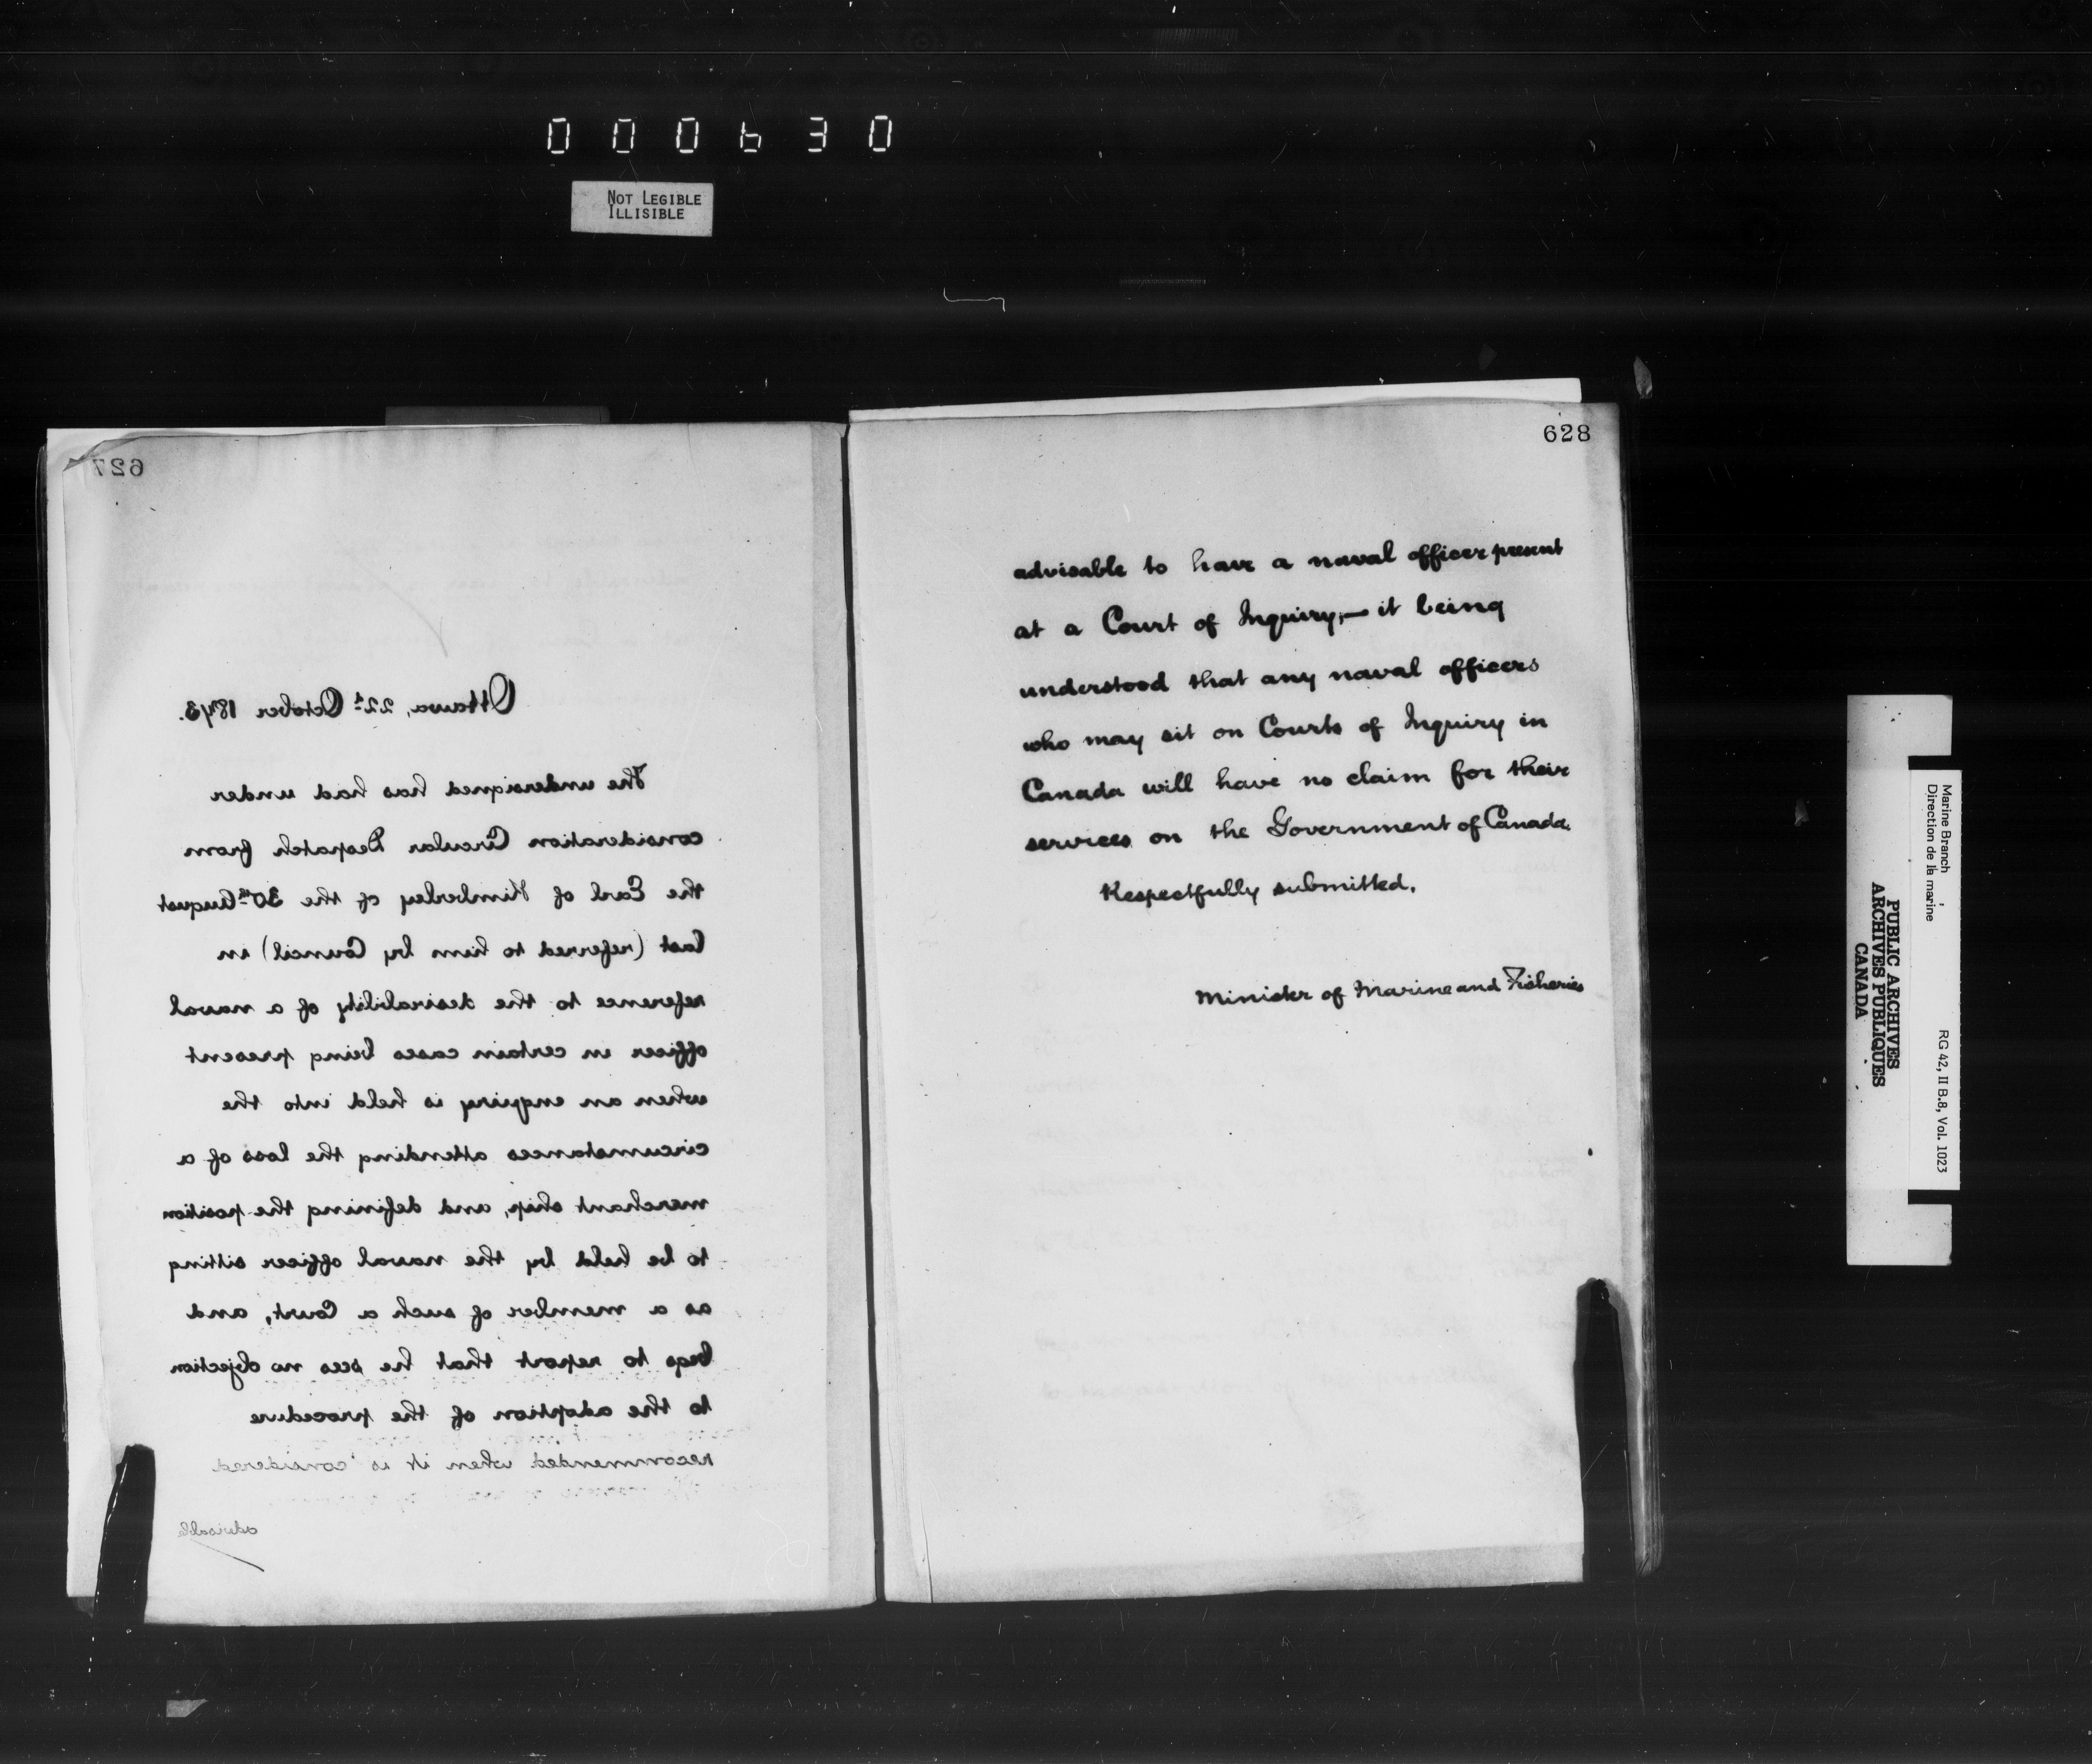 000630
NOT LEGIBLE
ILLISIBLE
627
Ottawa, 22d October 1873.
The undersigned has had under
consideration Circular Despatch from
the Earl of Kimberley of the 30th August
last (referred to him by Council) in
reference to the desirability of a naval
officer in certain cases being present
when an enquiry is held into the
circumstances attending the loss of a
merchant ship, and defining the position
to be held by the naval officer sitting
as a member of such a Court, and
begs to report that he sees no objection
to the adoption of the procedure
recommended when it is considered
advisable
628
advisable to have a naval officer present
at a Court of Inquiry,— it being
understood that any naval officers
who may sit on Courts of Inquiry in
Canada will have no claim for their
services on the Government of Canada.
Respectfully submitted.
Minister of Marine and Fisheries
Marine Branch
Direction de la marine
RG 42, II B.8, Vol. 1023
PUBLIC ARCHIVES
ARCHIVES PUBLIQUES
CANADA